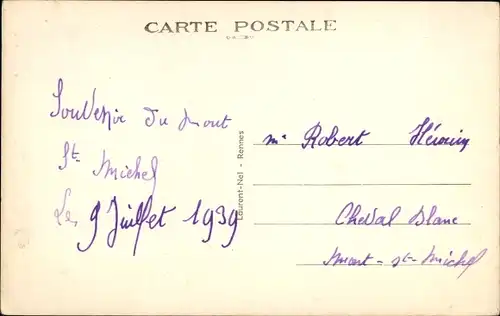 CARTE POSTALE
Souvenir du Mont
St Michel
Le 9 Juillet 1939
Laurent-Nel - Rennes
Mr Robert
Cheval Blanc
Mont-St-Michel